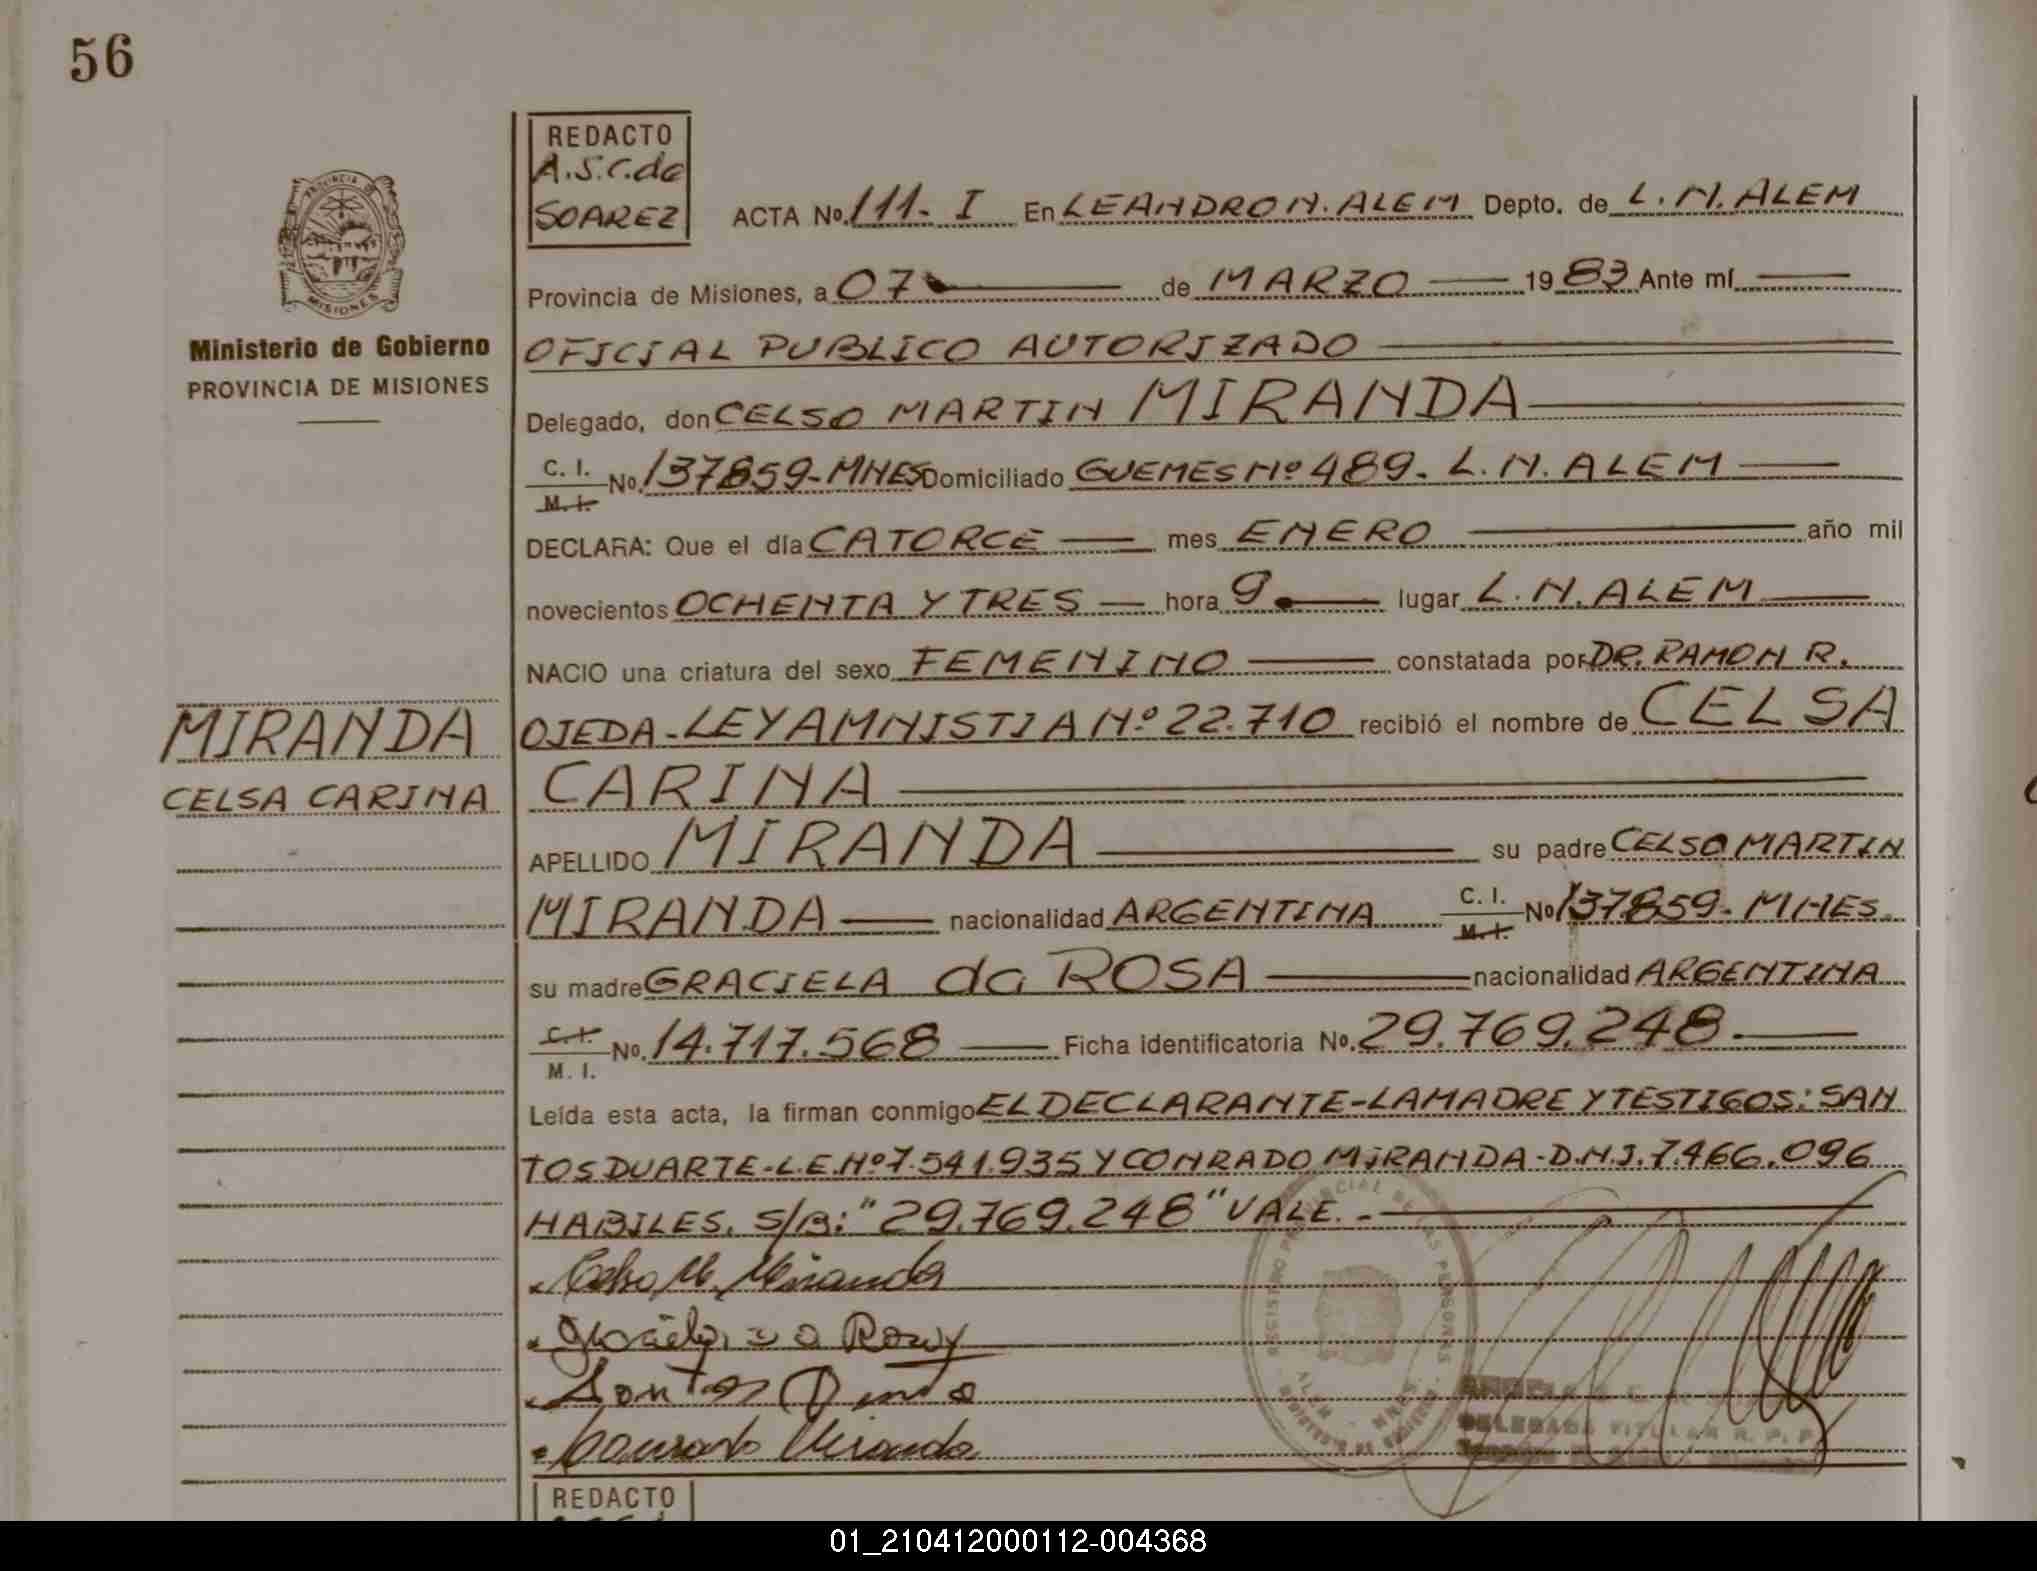 56
REDACTO
A.S.C.de
SOAREZ
ACTA No. 111. I En LEANDRO N. ALEM Depto. de L. N. ALEM
Provincia de Misiones, a 07 de MARZO 1983 Ante mí
Ministerio de Gobierno
PROVINCIA DE MISIONES
OFICIAL PUBLICO AUTORIZADO
Delegado, don CELSO MARTIN MIRANDA
C. I. M. I. No. 137859-MNES Domiciliado GUEMES Nº 489. L. N. ALEM
DECLARA: Que el día CATORCE mes ENERO año mil
novecientos OCHENTA Y TRES hora 9. lugar L. N. ALEM
NACIO una criatura del sexo FEMENINO constatada por DR. RAMON R.
MIRANDA
CELSA CARINA
OJEDA-LEY AMNISTIA Nº 22.710 recibió el nombre de CELSA
CARINA
APELLIDO MIRANDA su padre CELSO MARTIN
MIRANDA nacionalidad ARGENTINA C. I. M. I. No 137859-MNES.
su madre GRACIELA da ROSA nacionalidad ARGENTINA
C. I. M. I. No. 14.717.568 Ficha identificatoria No. 29.769.248
Leída esta acta, la firman conmigo EL DECLARANTE-LA MADRE Y TESTIGOS: SAN
TOS DUARTE-L.E.Nº 7.541.935 Y CONRADO MIRANDA-D.N.I. 7.466.096
HABILES. S/B: "29.769.248" VALE.-
Celso M. Miranda
Conrado Miranda
REGISTRO PROVINCIAL DE LAS PERSONAS
ALEM - MNES
DELEGADA TITULAR R. P. P.
REDACTO
01_210412000112-004368